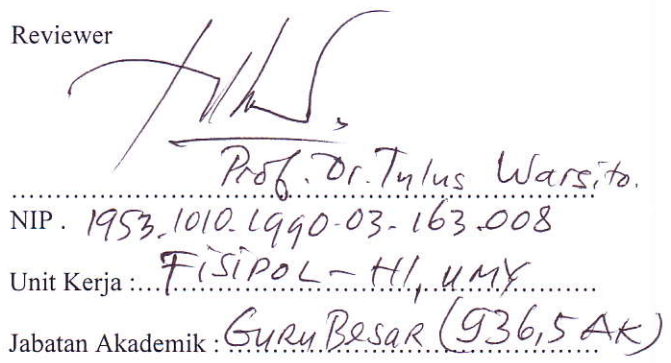 Reviewer
Prof. Dr. Tulus Warsito.
NIP. 1953.1010.1990-03-163.008
Unit Kerja : FISIPOL - HI, UMY
Jabatan Akademik : Guru Besar (936,5 AK)